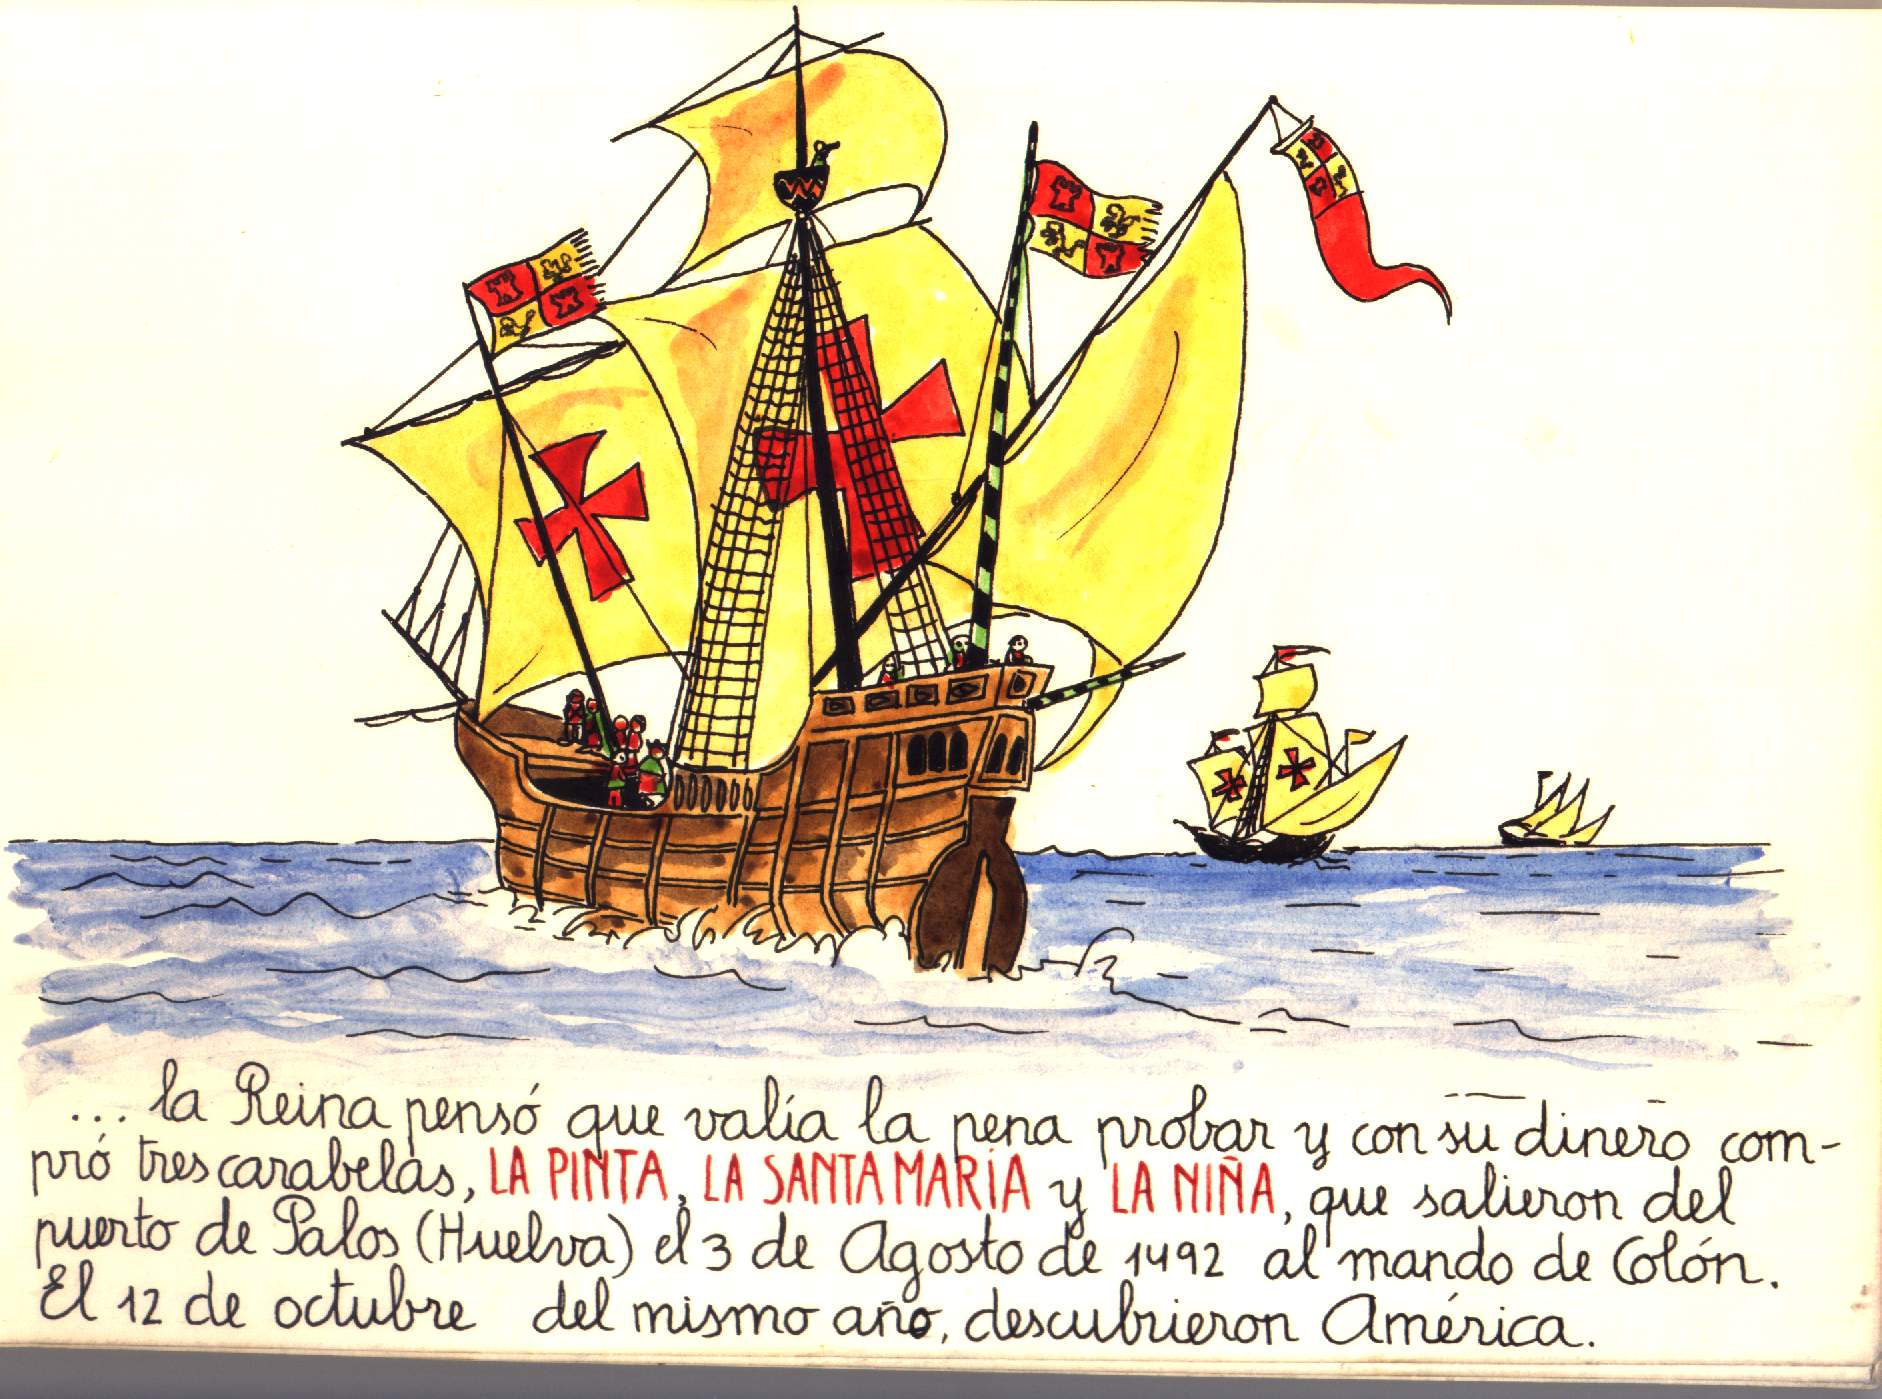 ... la Reina pensó que valía la pena probar y con su dinero com-
pró tres carabelas, LA PINTA, LA SANTA MARÍA y LA NIÑA, que salieron del
puerto de Palos (Huelva) el 3 de Agosto de 1492 al mando de Colón.
El 12 de octubre del mismo año, descubrieron América.